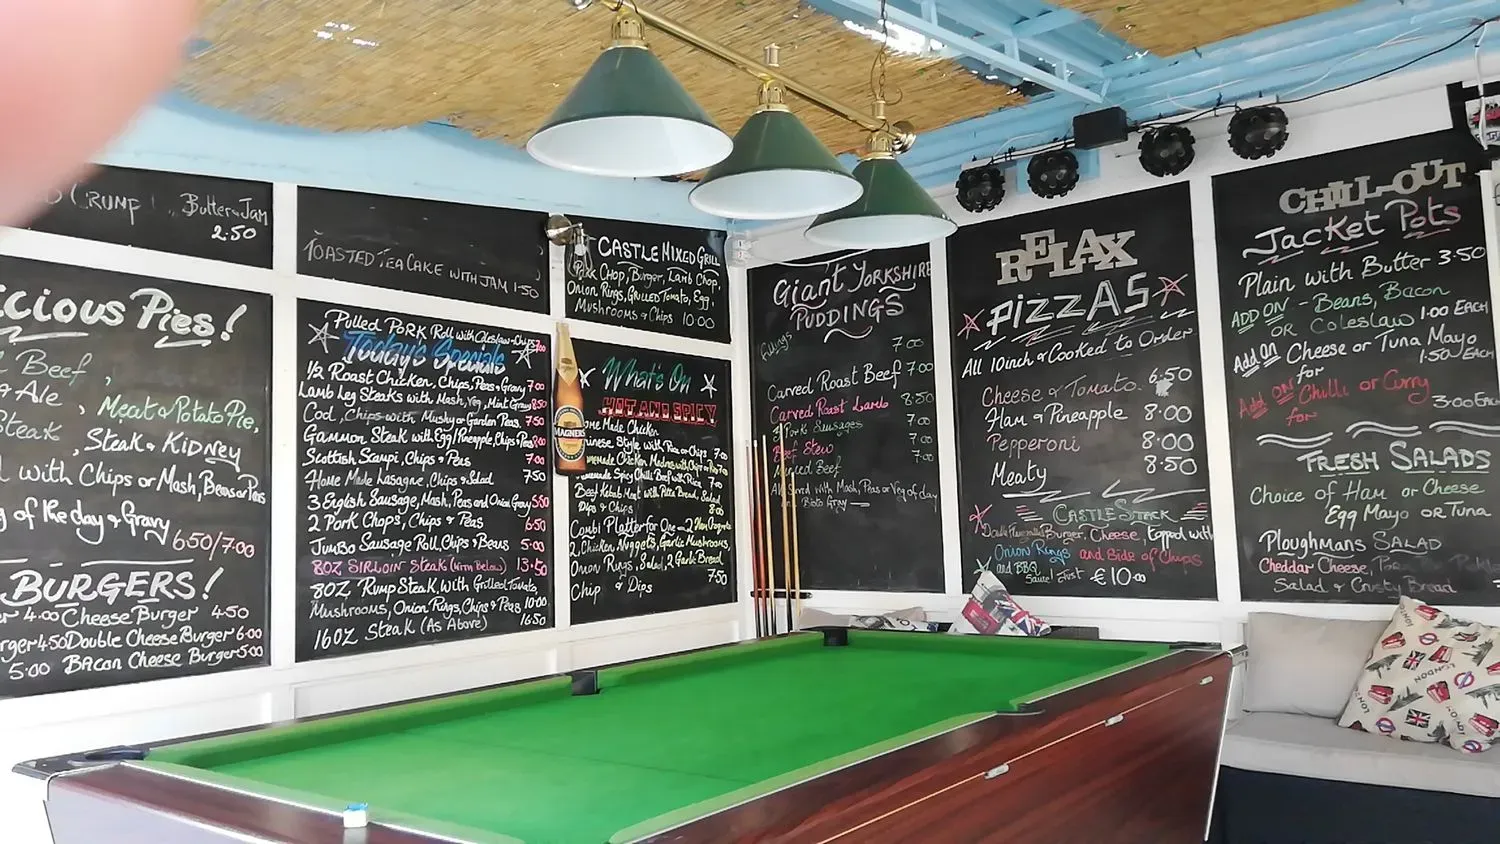 CRUMP
Butter & Jam
2.50
icious Pies!
Beef,
Ale, Meat & Potato Pie,
Steak, Steak & KIDNEY
with Chips or Mash, Beans or Peas
of the day & Gravy
6.50/7.00
BURGERS!
4.00 Cheese Burger 4.50
rger 4.50 Double Cheese Burger 6.00
5.00 Bacon Cheese Burger 5.00
TOASTED TEA CAKE WITH JAM 1.50
Pulled Pork Roll with Coleslaw & Chips 7.00
Today's Specials
1/2 Roast Chicken, Chips, Peas & Gravy 7.00
Lamb Leg Steaks with Mash, Veg, Mint Gravy 8.50
Cod, Chips with Mushy or Garden Peas 7.50
Gammon Steak with Egg/Pineapple, Chips & Peas 8.00
Scottish Scampi, Chips & Peas 7.00
Home Made Lasagne, Chips & Salad 7.50
3 English Sausage, Mash, Peas and Onion Gravy 5.50
2 Pork Chops, Chips & Peas 6.50
Jumbo Sausage Roll, Chips & Beans 5.00
8OZ SIRLOIN STEAK (WITH BELOW) 13.50
8OZ Rump Steak, with Grilled Tomato,
Mushrooms, Onion Rings, Chips & Peas 10.00
16OZ Steak (As Above) 16.50
CASTLE MIXED GRILL
Pork Chop, Burger, Lamb Chop,
Onion Rings, Grilled Tomato, Egg,
Mushrooms & Chips 10.00
MAGNERS
What's On
HOT AND SPICY
Home Made Chicken
Chinese Style with Rice or Chips 7.00
Homemade Chicken Madras with Chips or Rice 7.00
Homemade Spicy Chilli Beef with Rice 7.00
Beef Kebab Meat with Pitta Bread, Salad
Dips & Chips 8.00
Combi Platter for One - 2
2 Chicken Nuggets, Garlic Mushrooms,
Onion Rings, Salad, 2 Garlic Bread
Chip & Dips 7.50
Giant YORKSHIRE
PUDDINGS
Fillings
7.00
Carved Roast Beef 7.00
Carved Roast Lamb 8.50
3 Pork Sausages 7.00
Beef Stew 7.00
Minced Beef 7.00
All Served with Mash, Peas or Veg of day
Bisto Gravy
RELAX
PIZZAS
All 10inch & Cooked to Order
Cheese & Tomato. 6.50
Ham & Pineapple 8.00
Pepperoni 8.00
Meaty 8.50
CASTLE STACK
Burger, Cheese, topped with
Onion Rings and side of Chips
and BBQ Sauce! Just €10.00
CHILL-OUT
Jacket Pots
Plain with Butter 3.50
ADD ON - Beans, Bacon
OR Coleslaw 1.00 EACH
Add On Cheese or Tuna Mayo
for 1.50 EACH
Add ON Chilli or Curry
for 3.00 EACH
FRESH SALADS
Choice of Ham or Cheese
Egg Mayo or Tuna
Ploughmans SALAD
Cheddar Cheese,
Salad & Crusty Bread
LONDON